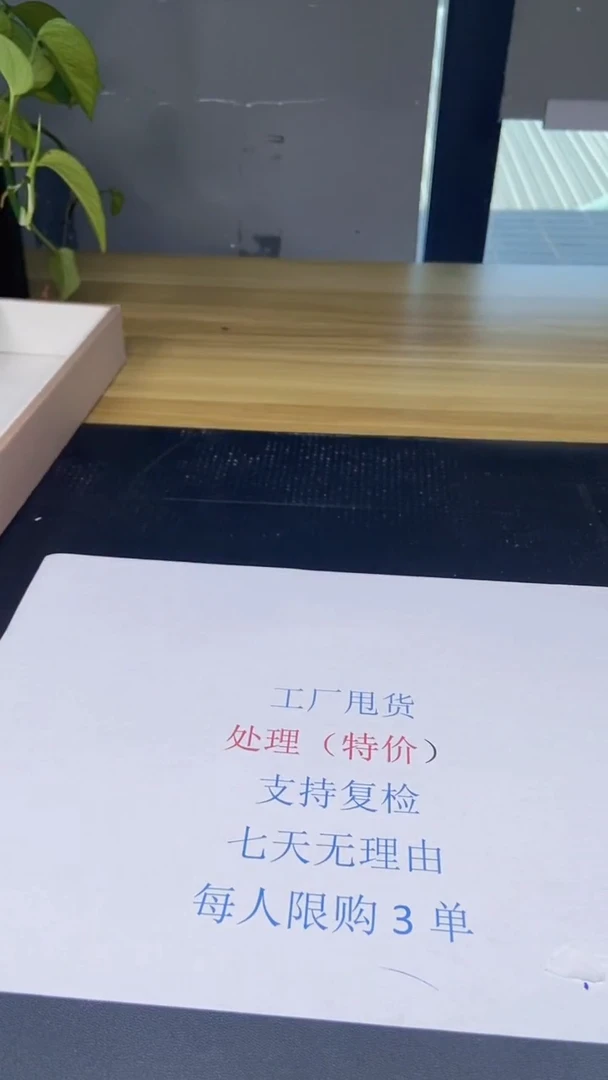 工厂甩货
处理（特价）
支持复检
七天无理由
每人限购3单